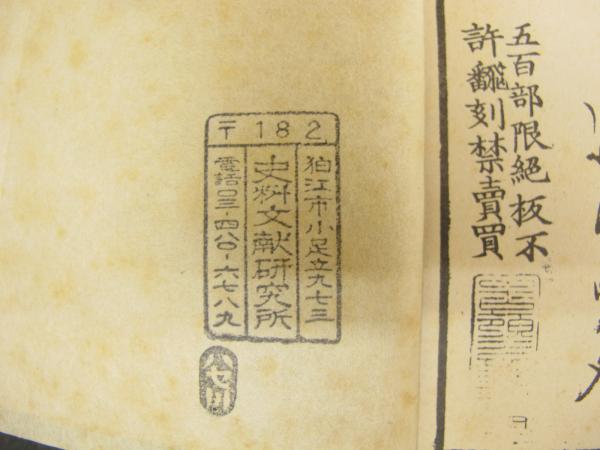 五百部限絶板不
許飜刻禁賣買
〒182
狛江市小足立九七三
史料文献研究所
電話〇三-四八〇-六七八九